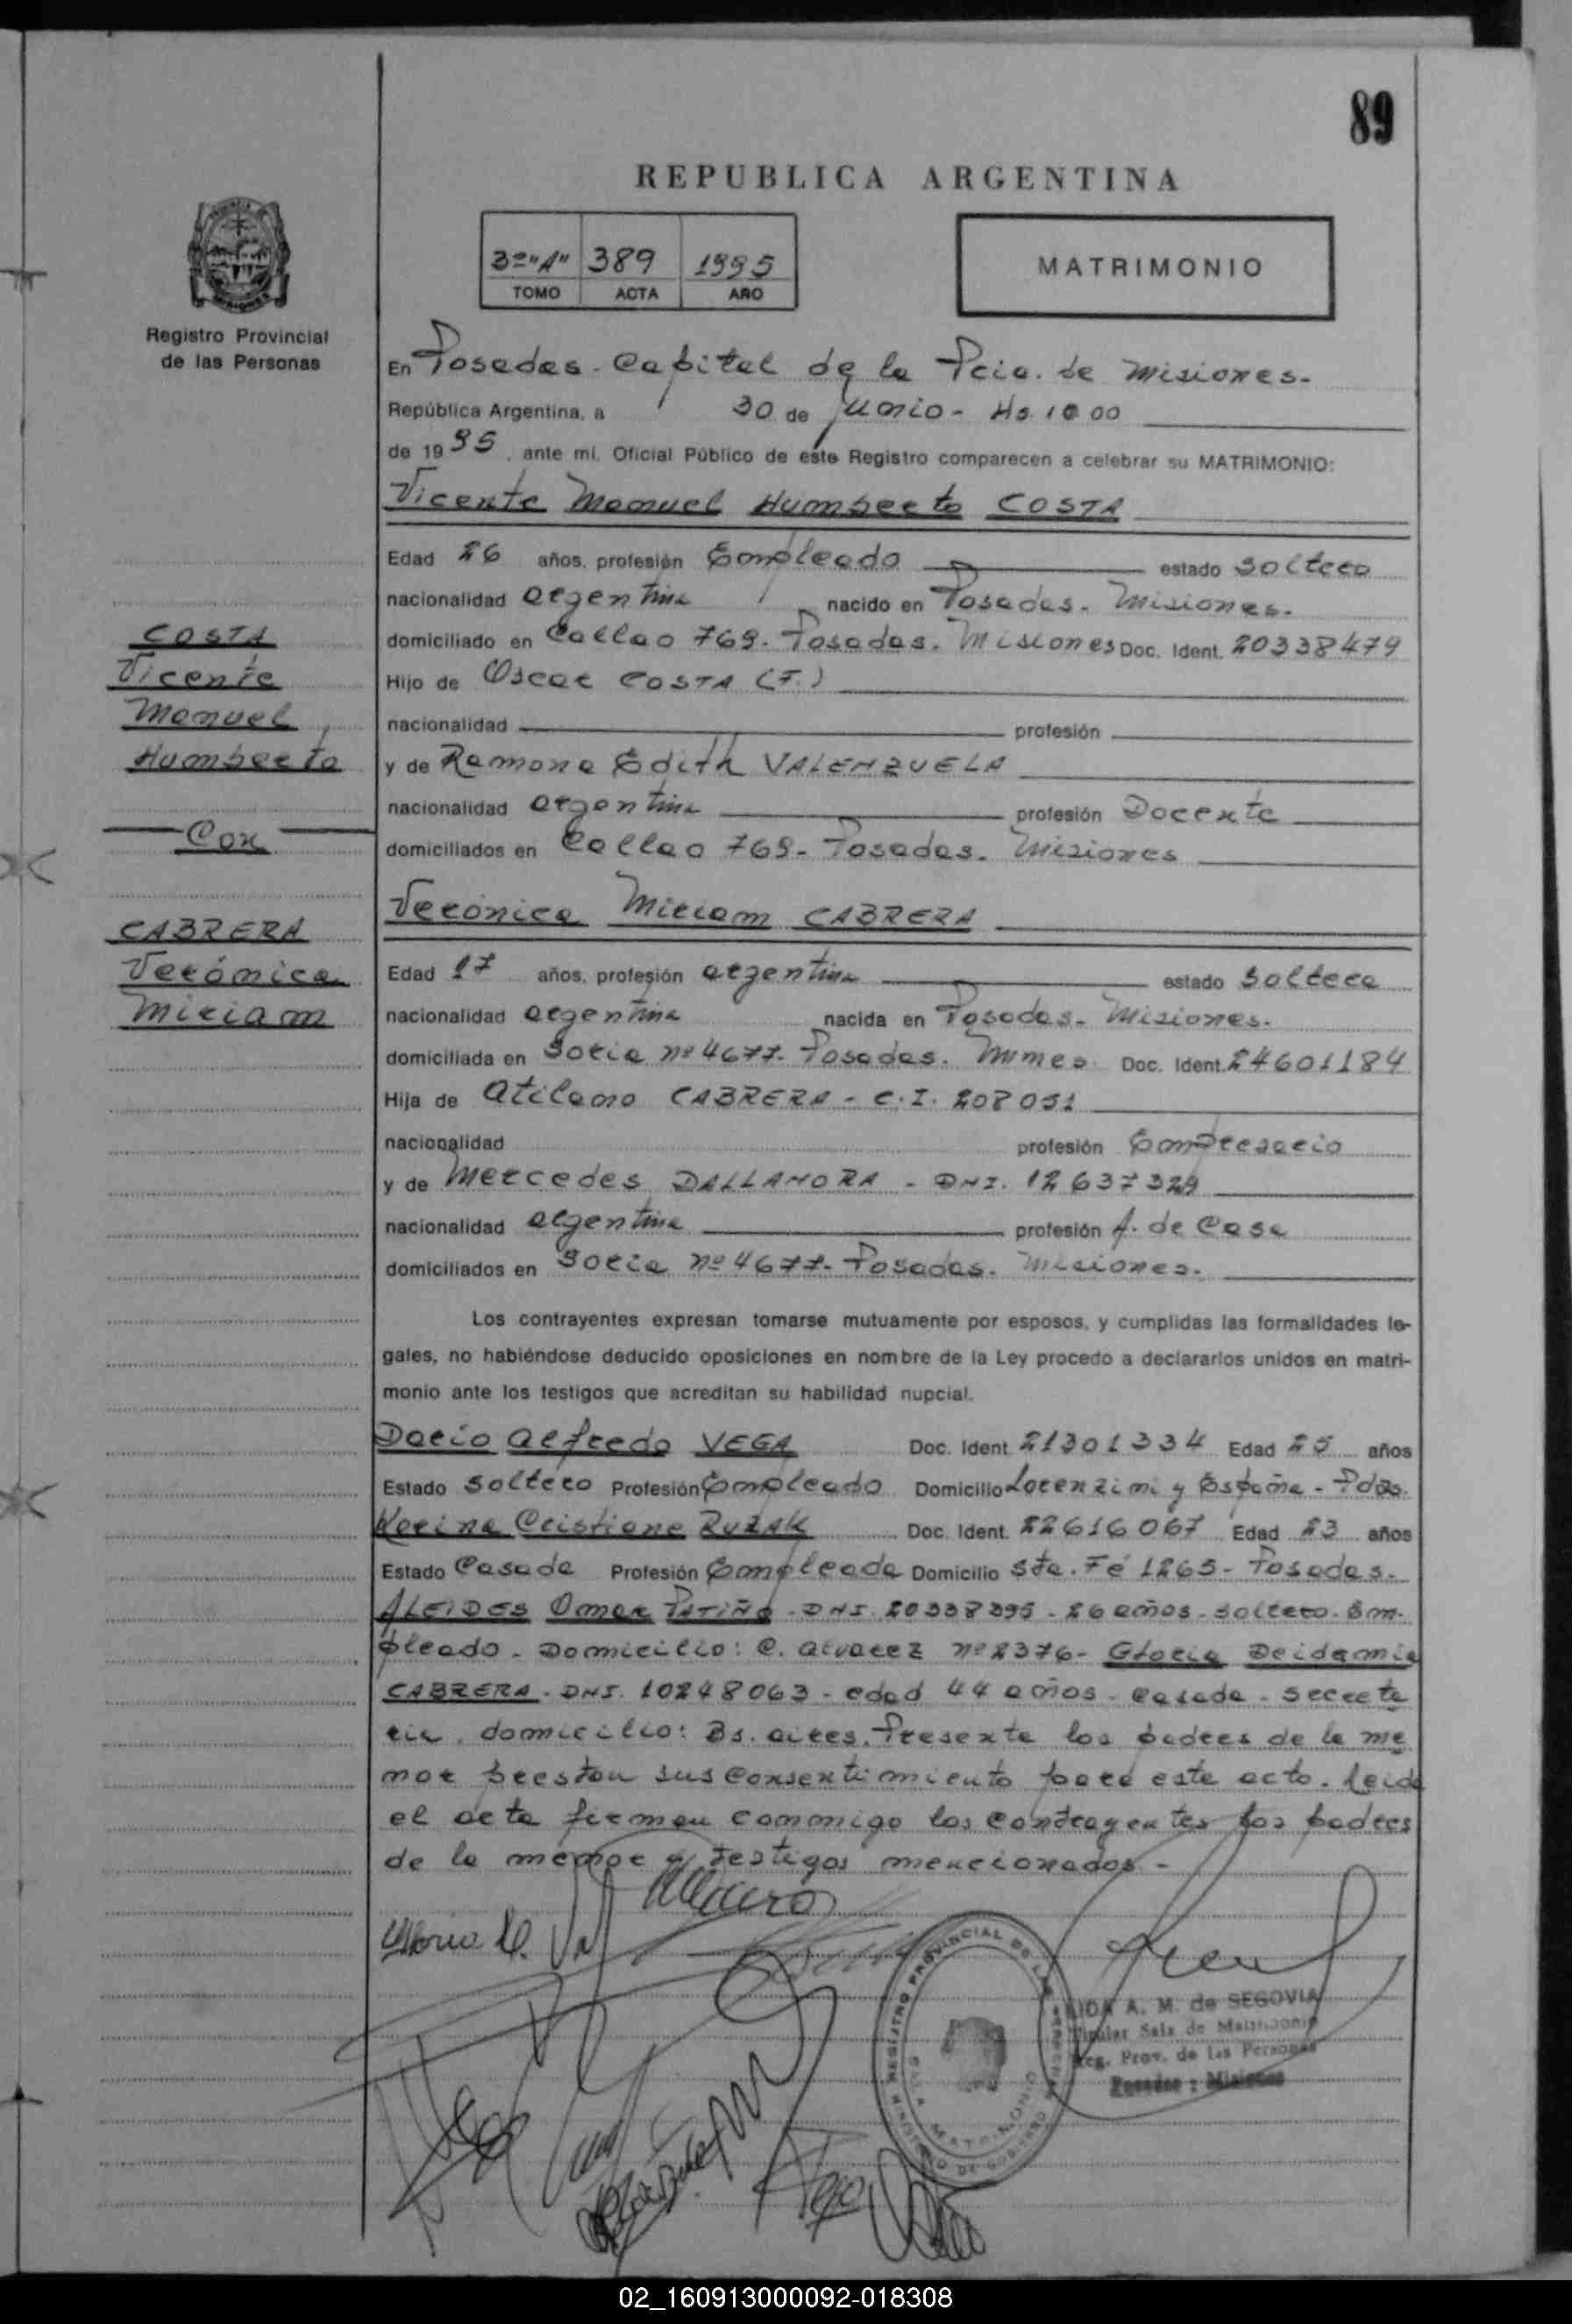 89
REPUBLICA ARGENTINA
3º"A" 389 1995
TOMO ACTA AÑO
MATRIMONIO
Registro Provincial
de las Personas
En Posadas - Capital de la Pcia. de Misiones.
República Argentina, a 30 de Junio - Hs. 10 00
de 1995, ante mí, Oficial Público de este Registro comparecen a celebrar su MATRIMONIO:
Vicente Manuel Humberto COSTA
Edad 26 años, profesión Empleado estado soltero
nacionalidad argentina nacido en Posadas - Misiones.
domiciliado en Callao 769. Posadas. Misiones Doc. Ident. 20338479
Hijo de Oscar COSTA (F.)
nacionalidad profesión
y de Ramona Edith VALENZUELA
nacionalidad argentina profesión Docente
domiciliados en Callao 769 - Posadas. Misiones
COSTA
Vicente
Manuel
Humberto
Con
CABRERA
Verónica
Miriam
Verónica Miriam CABRERA
Edad 17 años, profesión argentina estado soltera
nacionalidad argentina nacida en Posadas - Misiones.
domiciliada en Soria nº 4677. Posadas. Mnnes. Doc. Ident. 24601184
Hija de Atilano CABRERA - C.I. 208051
nacionalidad profesión Empresario
y de Mercedes DALLANORA - DNI. 12637329
nacionalidad argentina profesión A. de Casa
domiciliados en Soria nº 4677 - Posadas. Misiones.
Los contrayentes expresan tomarse mutuamente por esposos, y cumplidas las formalidades le-
gales, no habiéndose deducido oposiciones en nombre de la Ley procedo a declararlos unidos en matri-
monio ante los testigos que acreditan su habilidad nupcial.
Dario Alfredo VEGA Doc. Ident. 21301334 Edad 25 años
Estado soltero Profesión Empleado Domicilio Lorenzini y España - Pdas.
Karina Cristiane RUZAK Doc. Ident. 22616067 Edad 23 años
Estado Casada Profesión Empleada Domicilio Sta. Fé 1265 - Posadas.
ALCIDES Omar PATIÑO - DNI. 20338395 - 26 años - soltero - Em-
pleado - Domicilio: C. Alvarez nº 2376 - Gloria Deidamia
CABRERA - DNI. 10248063 - edad 44 años - casada - secreta
ria. domicilio: Bs. aires. Presente los padres de la me
nor prestan sus consentimiento para este acto. Leida
el acta firman conmigo los contrayentes los padres
de la menor y testigos mencionados -
REGISTRO PROVINCIAL DE LAS PERSONAS
MINISTERIO DE GOBIERNO
SALA MATRIMONIO
AIDA A. M. de SEGOVIA
Titular Sala de Matrimonio
Reg. Prov. de las Personas
Posadas : Misiones
02_160913000092-018308